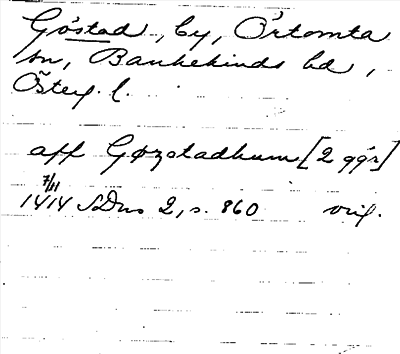 Göstad, by, Örtomta
sn, Bankekinds hd,
Österg. l.
aff Gøzstadhum [2 ggr]
7/11
1414 SDns 2, s. 860 orig.